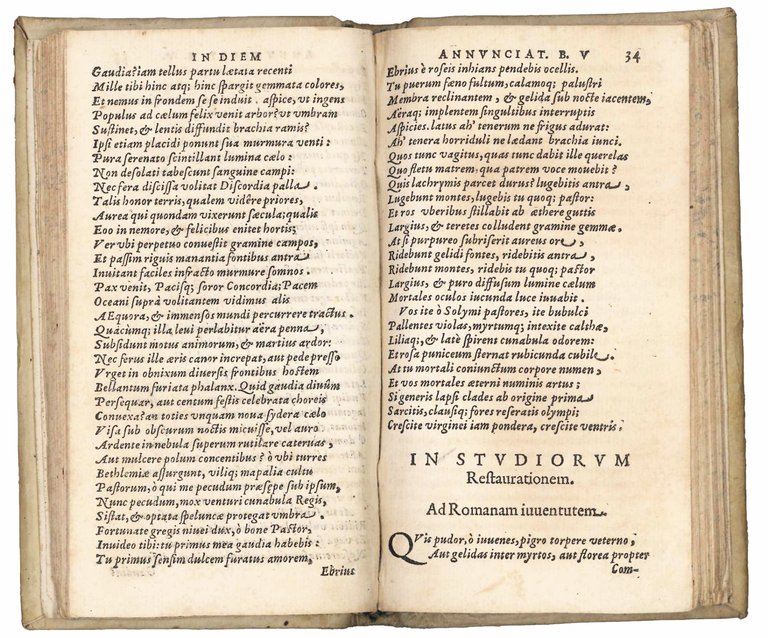 IN DIEM
Gaudia? iam tellus partu lætata recenti
Mille tibi hinc atq; hinc spargit gemmata colores,
Et nemus in frondem se se induit. aspice, vt ingens
Populus ad cælum felix venit arbor? vt vmbram
Sustinet, & lentis diffundit brachia ramis?
Ipsi etiam placidi ponunt sua murmura venti:
Pura serenato scintillant lumina cælo:
Non desolati tabescunt sanguine campi:
Nec fera discissa volitat Discordia palla.
Talis honor terris, qualem vidêre priores,
Aurea qui quondam vixerunt sæcula; qualis
Eoo in nemore, & felicibus enitet hortis;
Ver vbi perpetuo conuestit gramine campos,
Et passim riguis manantia fontibus antra
Inuitant faciles infracto murmure somnos.
Pax venit, Pacisq; soror Concordia; Pacem
Oceani suprà volitantem vidimus alis
AEquora, & immensos mundi percurrere tractus.
Quàcùmq; illa leui perlabitur aëra penna,
Subsidunt motus animorum, & martius ardor:
Nec ferus ille æris canor increpat, aut pede presso
Vrget in obnixum diuersis frontibus hostem
Bellantum furiata phalanx. Quid gaudia diuûm
Persequar, aut centum festis celebrata choreis
Conuexa? an toties vnquam noua sydera cælo
Visa sub obscurum noctis micuisse, vel auro
Ardente in nebula superum rutilare cateruas,
Aut mulcere polum concentibus? ò vbi turres
Bethlemiæ assurgunt, viliq; mapalia cultu
Pastorum, ò qui me pecudum præsepe sub ipsum,
Nunc pecudum, mox venturi cunabula Regis,
Sistat, & optata speluncæ protegat vmbra.
Fortunate gregis niuei dux, ò bone Pastor,
Inuideo tibi: tu primus mea gaudia habebis:
Tu primus sensim dulcem furatus amorem,
Ebrius
ANNVNCIAT. B. V 34
Ebrius è roseis inhians pendebis ocellis.
Tu puerum fæno fultum, calamoq; palustri
Membra reclinantem, & gelida sub nocte iacentem,
Aëraq; implentem singultibus interruptis
Aspicies. latus ah' tenerum ne frigus adurat:
Ah' tenera horriduli ne lædant brachia iunci.
Quos tunc vagitus, quas tunc dabit ille querelas
Quo fletu matrem, qua patrem voce mouebit?
Quis lachrymis parcet durus? lugebitis antra,
Lugebunt montes, lugebis tu quoq; pastor:
Et ros vberibus stillabit ab æthere guttis
Largius, & teretes colludent gramine gemmæ.
At si purpureo subriserit aureus ore,
Ridebunt gelidi fontes, ridebitis antra,
Ridebunt montes, ridebis tu quoq; pastor
Largius, & puro diffusum lumine cælum
Mortales oculos iucunda luce iuuabit.
Vos ite ò Solymi pastores, ite bubulci
Pallentes violas, myrtumq; intexite calthæ,
Liliaq;, & latè spirent cunabula odorem:
Et rosa puniceum sternat rubicunda cubile.
At tu mortali coniunctum corpore numen,
Et vos mortales æterni numinis artus;
Si generis lapsi clades ab origine prima
Sarcitis, clausiq; fores reseratis olympi;
Crescite virginei iam pondera, crescite ventris.
IN STVDIORVM
Restaurationem.
Ad Romanam iuuentutem.
QVis pudor, ò iuuenes, pigro torpere veterno,
Aut gelidas inter myrtos, aut florea propter
Com-